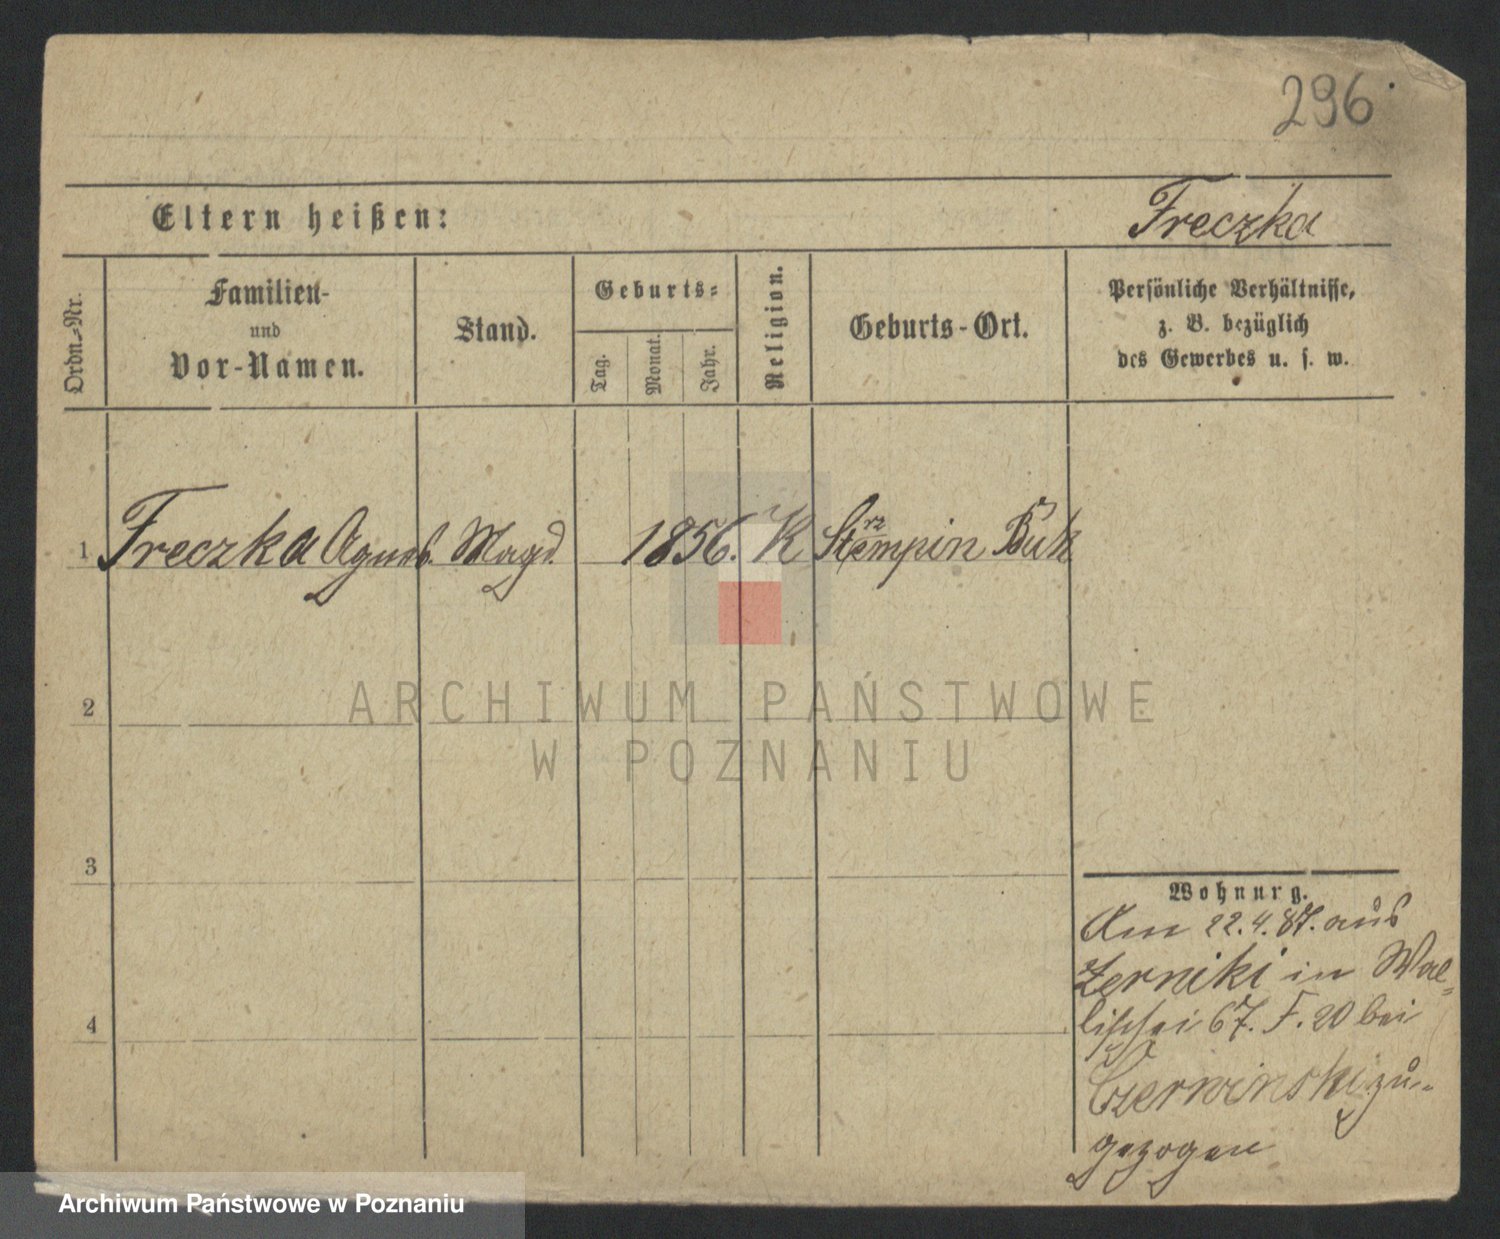 296
Eltern heißen:
Freczka
Ordn.-Nr.
Familien-
und
Vor-Namen.
Stand.
Geburts-
Tag.
Monat.
Jahr.
Religion.
Geburts-Ort.
Persönliche Verhältnisse,
z. B. bezüglich
des Gewerbes u. s. w.
1 Freczka Agnes. Magd. 1856. K Stempin Buk
rz
2
3
4
Wohnung.
Am 22.4.87. aus
Zerniki in Wal-
lischei 67. F. 20 bei
Czerwinski zu-
gezogen
ARCHIWUM PAŃSTWOWE
W POZNANIU
Archiwum Państwowe w Poznaniu